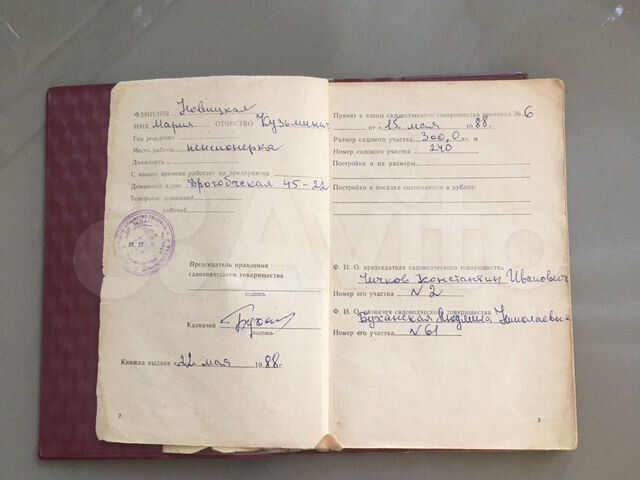 ФАМИЛИЯ Новицкая
ИМЯ Мария ОТЧЕСТВО Кузьминич
Год рождения
Место работы пенсионерка
Должность
С какого времени работает на предприятии
Домашний адрес Дрогобчская 45-22
Телефоны: домашний
рабочий
М. П.
Председатель правления
садоводческого товарищества
подпись
Казначей
подпись
Книжка выдана «22 мая 1988г.
2
Принят в члены садоводческого товарищества протокол № 6
от «15 мая 1988.
Размер садового участка 300,0 кв. м
Номер садового участка 240
Постройки и их размеры
Постройки и посадки оцениваются в рублях:
Ф. И. О. председателя садоводческого товарищества
Чичков Константин Иванович
Номер его участка N 2
Ф. И. О. казначея садоводческого товарищества
Буханская Людмила Николаевна
Номер его участка N 61
3
Avito